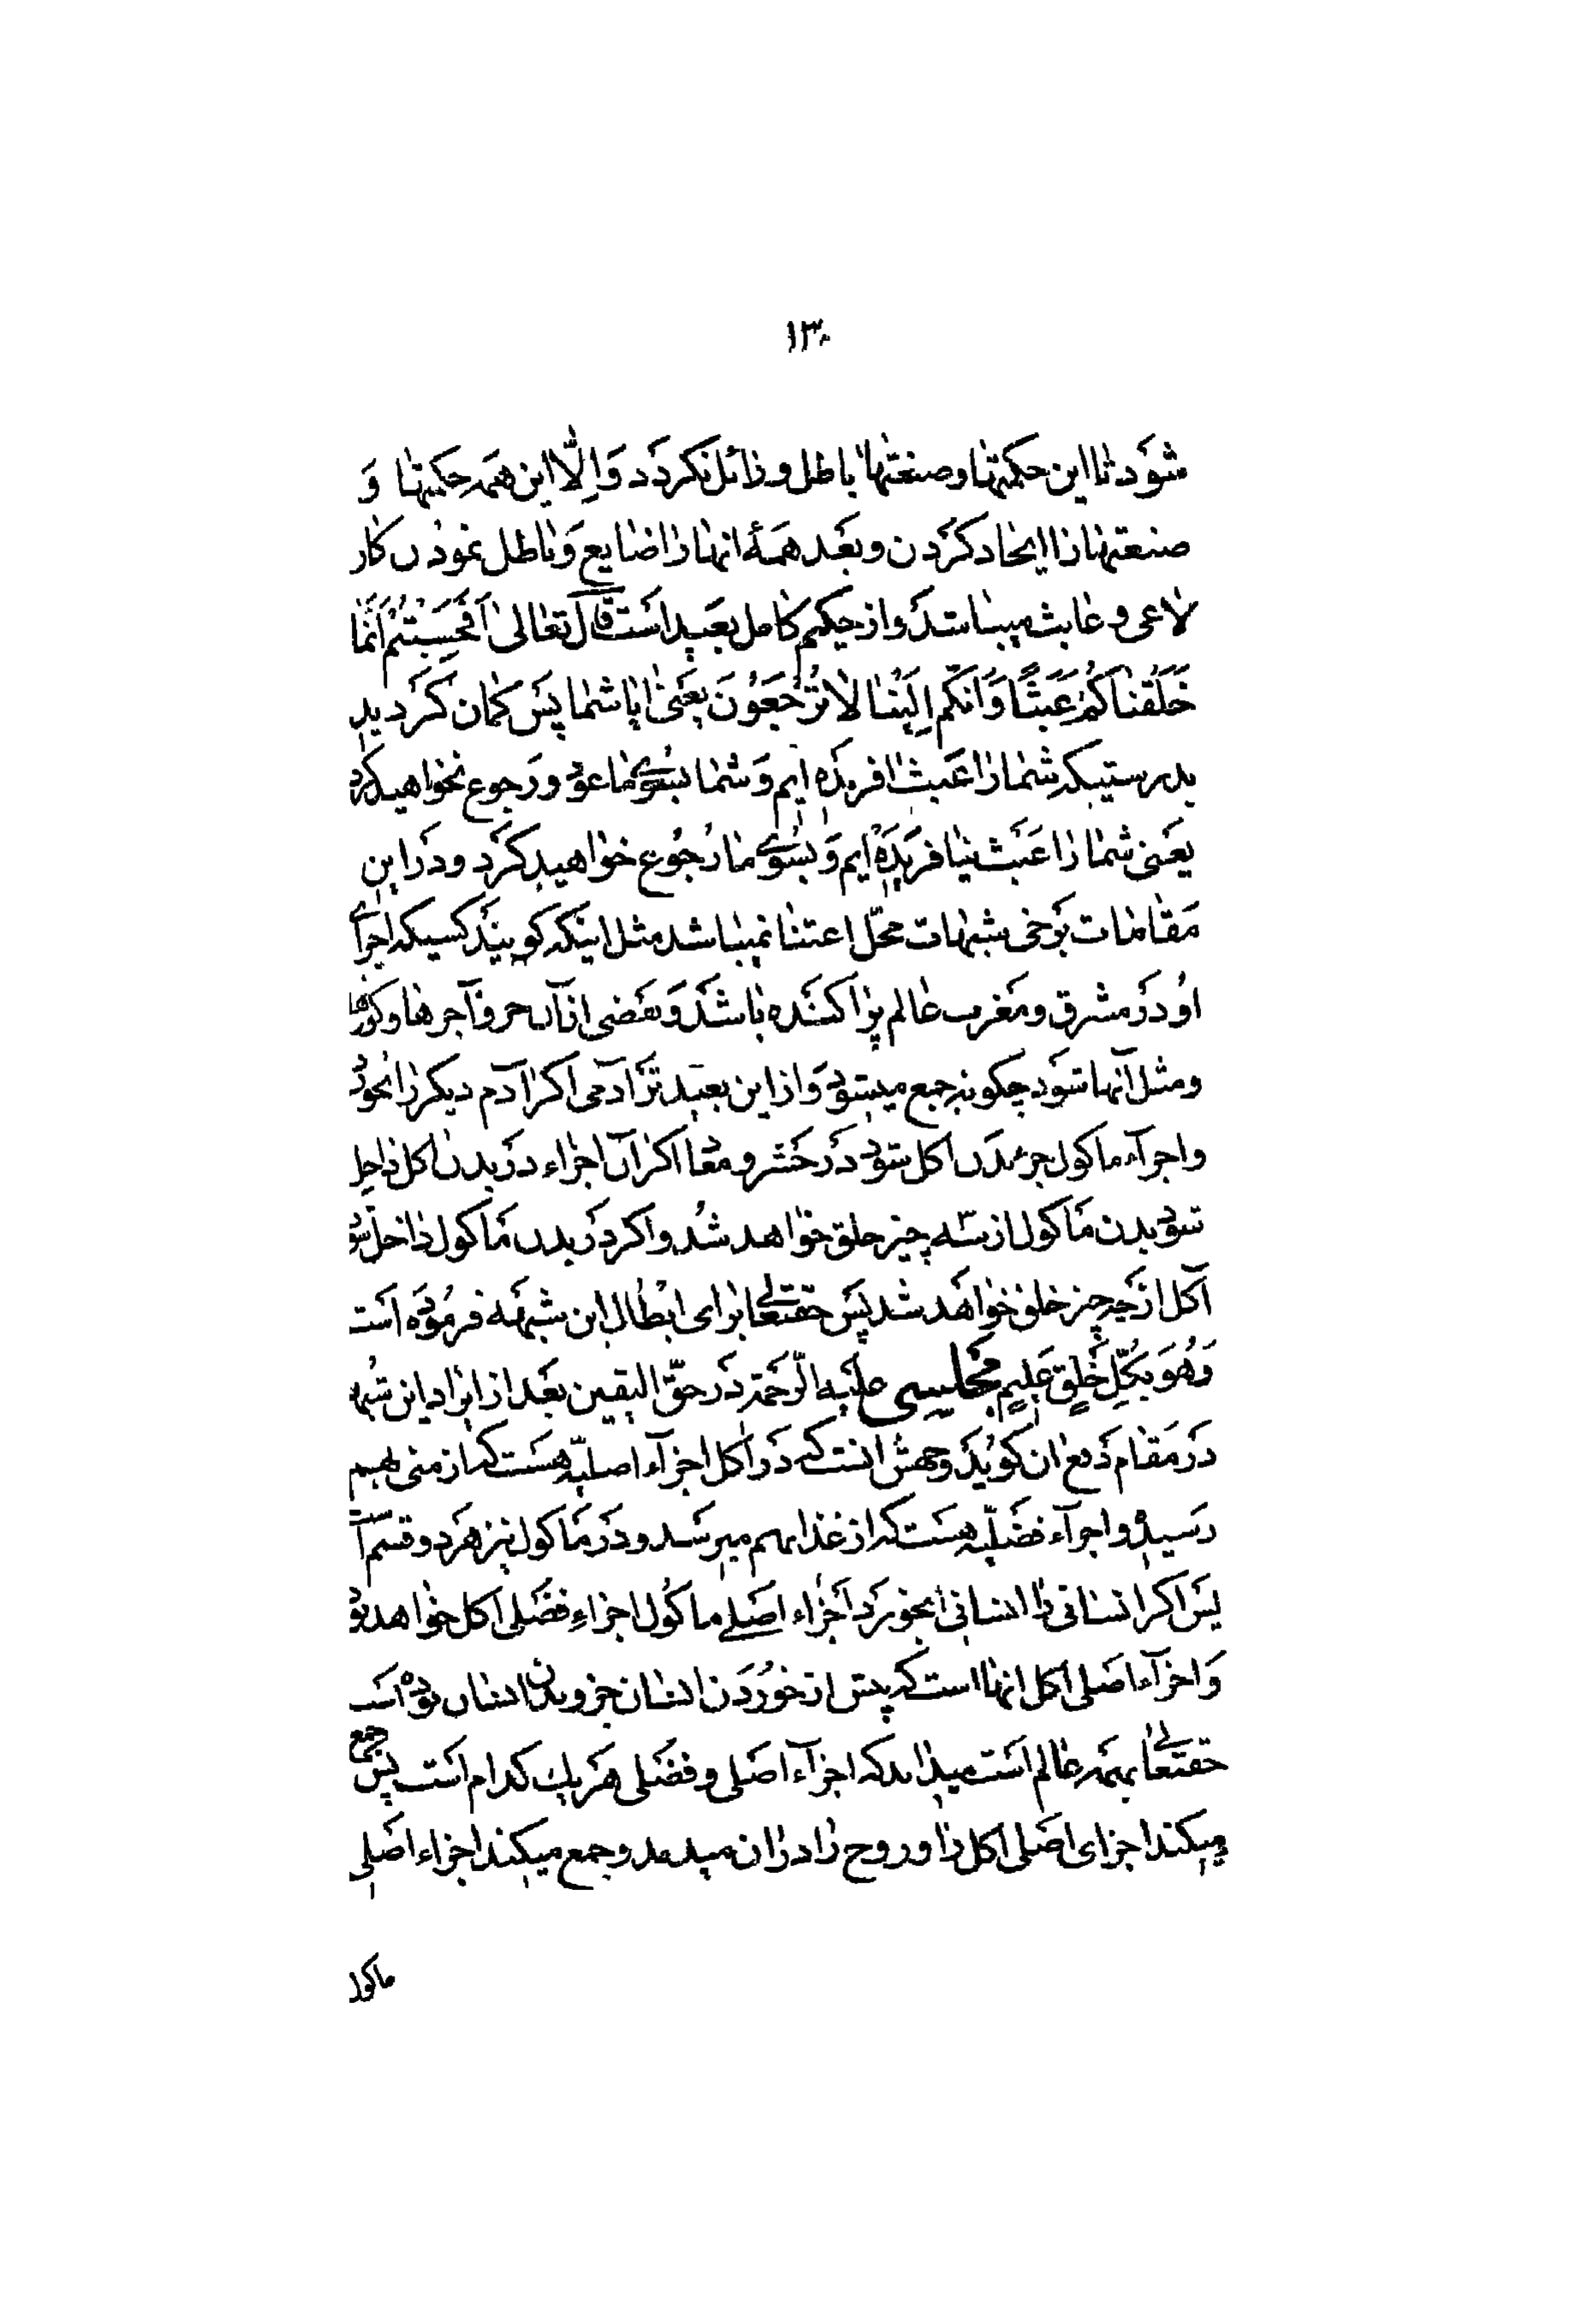 ۱۳۰
شود تا این حکمتها و صنعتها باطل و زائل نکردد وَاِلّا این همه حکمتها وَ
صنعتها را ایجاد کردن و بعد همهٔ انها را ضایع وَ باطل نمودن کار
لاعی و عابث میباشد و از حکیم کامل بعید است قال تعالی اَفَحَسِبْتُمْ اَنَّمٰا
خَلَقْنٰاکُمْ عَبَثًا وَاَنَّکُمْ اِلَیْنٰا لٰا تُرْجَعُوْنَ یعنی ایا شما پس کمان کردید
بدرستیکه شما را عبث افریده ایم وَ شما بسوی ما عود و رجوع نخواهید کرد
یعنی شما را عبث نیافریده ایم وَ بسوی ما رجوع خواهید کرد و در این
مقامات برخی شبهات محلّ اعتنا نمیباشد مثل اینکه کویند کسیکه اجزای
او در مشرق و مغرب عالم پراکنده باشد وَ بعضی از آن جزو آجرها و کوزها
و مثل آنها شود چکونه جمع میشود وَ از این بعید تر آدمی اکر آدم دیکر را بخورد
و اجزآء ماکول جزء بدن اکل شود در حشر و معاد اکر آن اجزاء در بدن اکل داخل
شود بدن ماکول از چه چیز خلق خواهد شد و اکر در بدن ماکول داخل شود
آکل از چه چیز خلق خواهد شد پس حقتعالی برای ابطال این شبهه فرموده است
وَهُوَ بِکُلِّ خَلْقٍ عَلِیمٍ مجلسی علیه الرّحمة در حقّ الیقین بعد از ایراد این شبهه
در مقام دفع ان کوید وجهش انست که در اکل اجزآء اصلیّه هست که از منی بهم
رسیده و اجزآء فضلیّه هست که از غذا بهم میرسد و در ماکول نیز هر دو قسم است
پس اکر انسانی را انسانی بخورد اجزاء اصلی ماکول اجزاءِ فضلی اکل خواهد بود
وَ اجزآء اصلی اکل انها است که پیش از خوردن انسان جزو بدن انسان بوده است
حقتعالی بهمه عالم است میداند که اجزآء اصلی و فضلی هر یک کدام است پس جمع
میکند اجزای اصلی اکل را و روح را در ان میدمد و جمع میکند اجزاء اصلی
ماکول